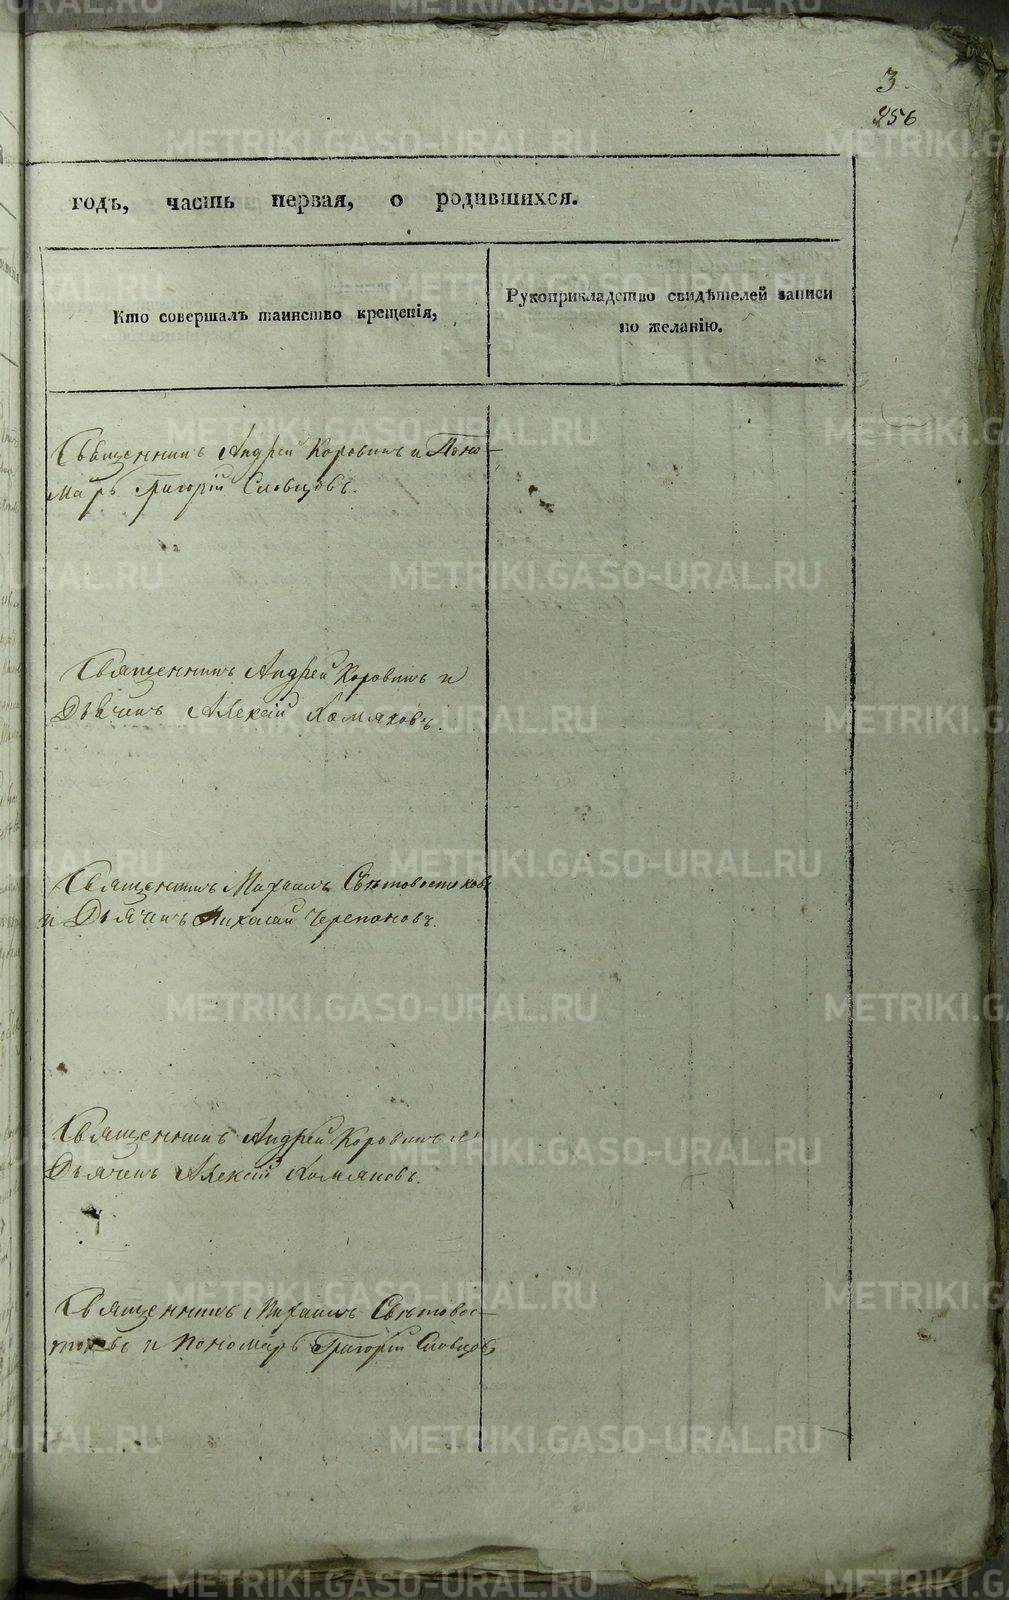 3.
256
годъ, часть первая, о родившихся.
Кто совершалъ таинство крещенія,
Рукоприкладство свидѣтелей записи
по желанію.
Священникъ Андрей Коровинъ и Поно-
марь Григорій Словцовъ.
Священникъ Андрей Коровинъ и
Дьячекъ Алексій Хомяковъ.
Священникъ Михаилъ Свѣтовостоковъ
и Дьячекъ Николай Черепановъ.
Священникъ Андрей Коровинъ и
Дьячекъ Алексій Хомяковъ.
Священникъ Михаилъ Свѣтовос-
токовъ и Пономарь Григорій Словцовъ
METRIKI.GASO-URAL.RU